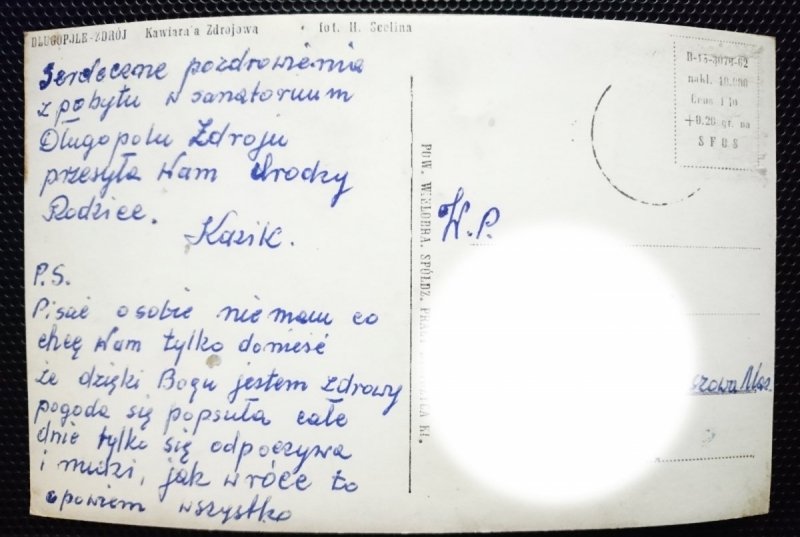 DŁUGOPOLE-ZDRÓJ Kawiarn'a Zdrojowa fot. H. Seelina
Serdeczne pozdrowienia
z pobytu w sanatorium
Długopolu Zdroju
przesyła Wam drodzy
Rodzice.
Kazik.
P.S.
Pisać o sobie nie mam co
chcę Wam tylko donieść
że dzięki Bogu jestem zdrowy
pogoda się popsuła całe
dnie tylko się odpoczywa
i nudzi, jak wróce to
opowiem wszystko
POW. WIELOBRA. SPÓŁDZ.
B-15-3079-62
nakl. 10.000
Cena 1 zł
+0.20 gr. na
SFOS
W.P.